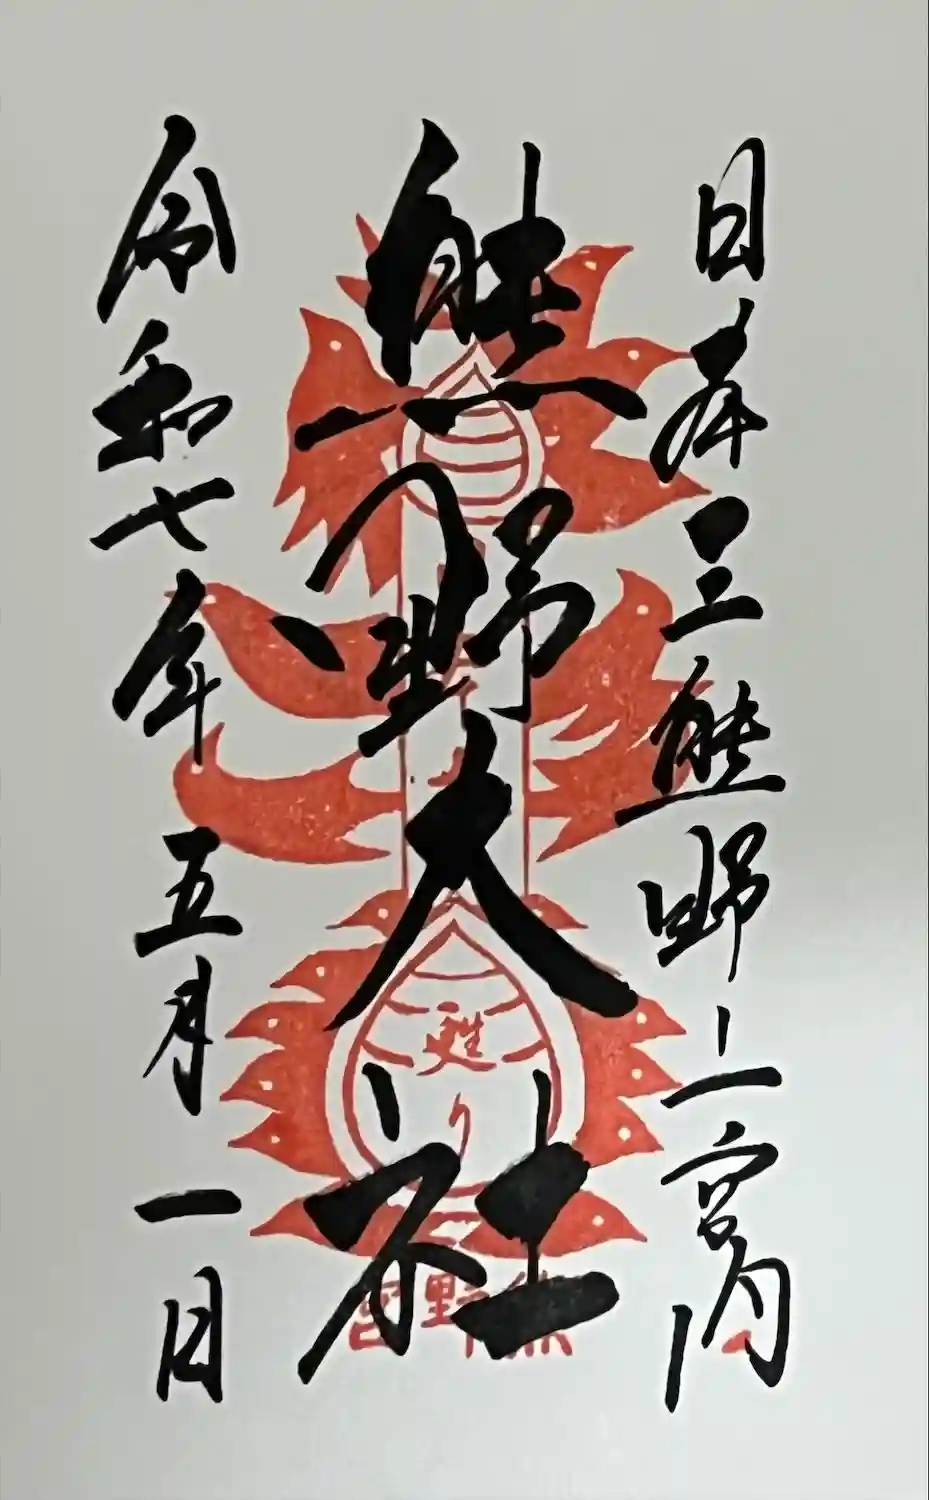 日本三熊野ノ一宮内
熊野大社
令和七年五月一日
甦り
宮野熊